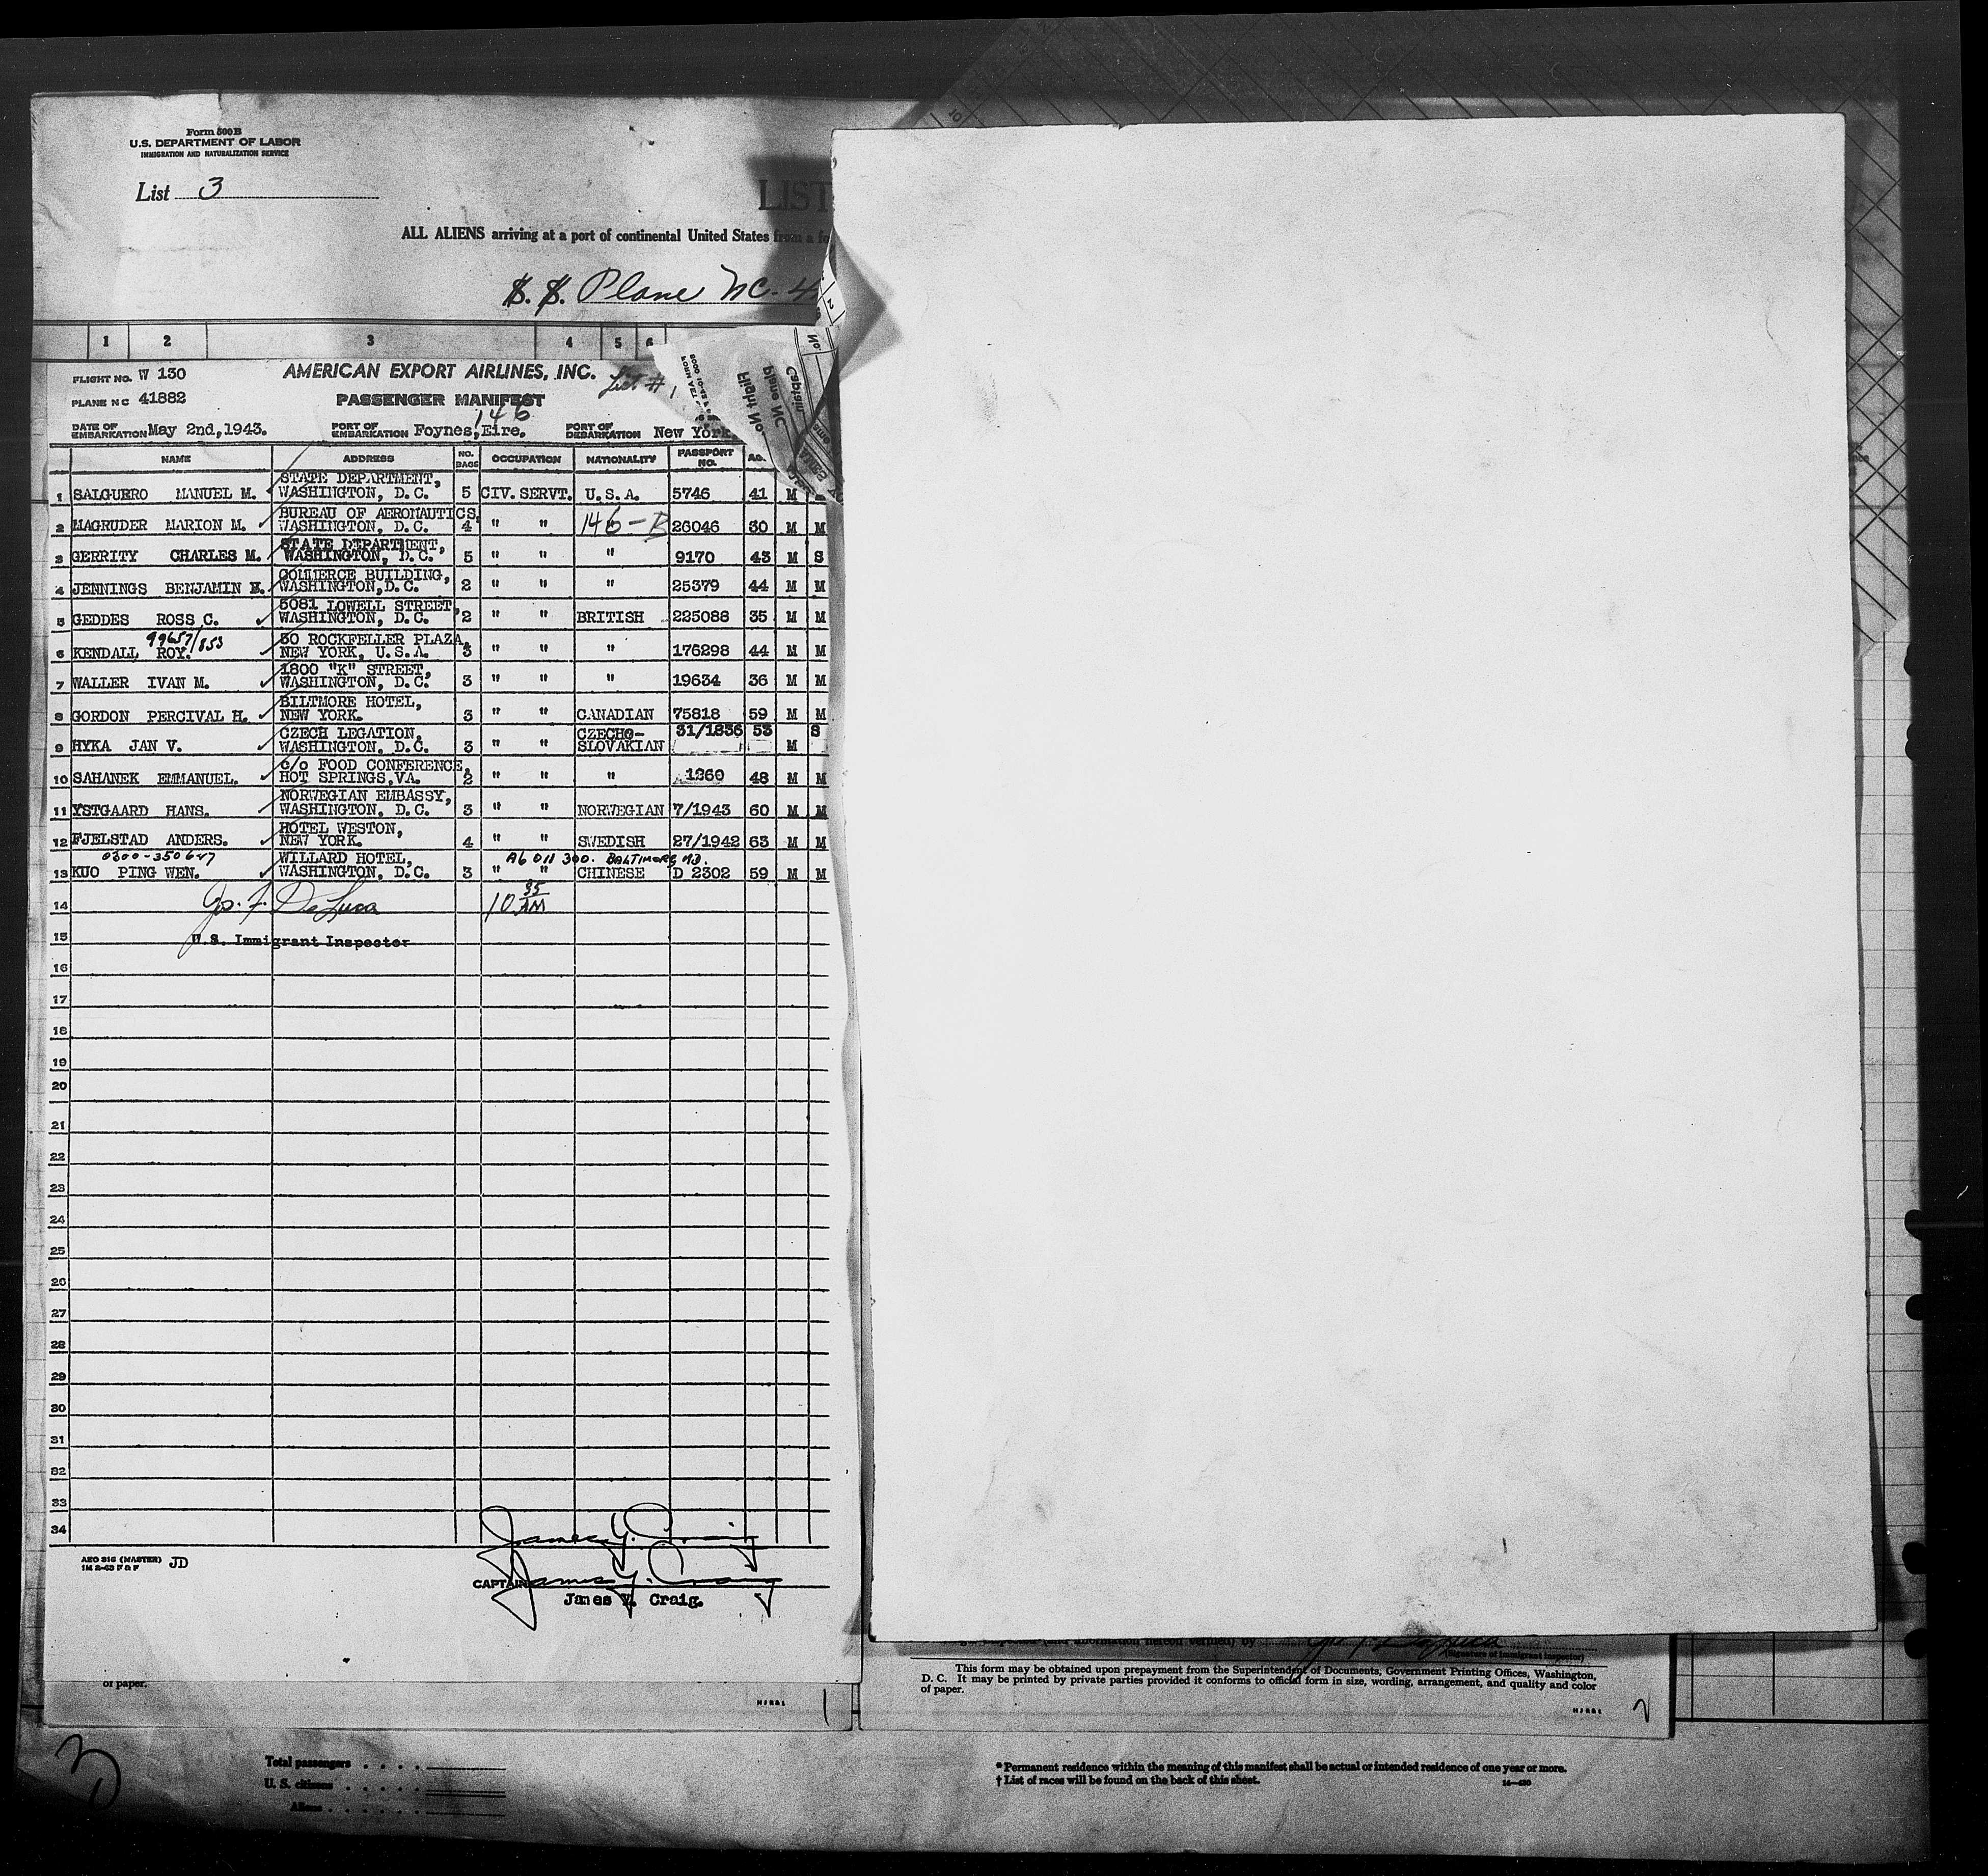 Form 500B
U.S. DEPARTMENT OF LABOR
IMMIGRATION AND NATURALIZATION SERVICE
List 3
LIST
ALL ALIENS arriving at a port of continental United States from a fo
S. S. Plane NC-4
1 2 3 4 5 6
FLIGHT NO. W 130
AMERICAN EXPORT AIRLINES, INC.
List # 1
PLANE NC 41882
PASSENGER MANIFEST
146
DATE OF EMBARKATION May 2nd,1943. PORT OF EMBARKATION Foynes,Eire. PORT OF DEBARKATION New York,
Flight No.
Plane NC
Captain
NAME ADDRESS NO. BAGS OCCUPATION NATIONALITY PASSPORT NO. AG
STATE DEPARTMENT,
1 SALGUERO MANUEL M. WASHINGTON, D.C. 5 CIV.SERVT. U.S.A. 5746 41 M
BUREAU OF AERONAUTICS,
2 MAGRUDER MARION M. WASHINGTON, D.C. 4 " " 146-B 26046 30 M M
STATE DEPARTMENT,
3 GERRITY CHARLES M. WASHINGTON, D.C. 5 " " " 9170 43 M S
COMMERCE BUILDING,
4 JENNINGS BENJAMIN H. WASHINGTON,D.C. 2 " " " 25379 44 M M
5081 LOWELL STREET,
5 GEDDES ROSS C. WASHINGTON, D.C. 2 " " BRITISH 225088 35 M M
99657/853
50 ROCKFELLER PLAZA,
6 KENDALL ROY. NEW YORK, U.S.A. 3 " " " 176298 44 M M
1800 "K" STREET,
7 WALLER IVAN M. WASHINGTON, D.C. 3 " " " 19634 36 M M
BILTMORE HOTEL,
8 GORDON PERCIVAL H. NEW YORK. 3 " " CANADIAN 75818 59 M M
CZECH LEGATION, CZECHO- 31/1836 53 S
9 HYKA JAN V. WASHINGTON, D.C. 3 " " SLOVAKIAN M
c/o FOOD CONFERENCE,
10 SAHANEK EMMANUEL. HOT SPRINGS,VA. 2 " " " 1260 48 M M
NORWEGIAN EMBASSY,
11 YSTGAARD HANS. WASHINGTON, D.C. 3 " " NORWEGIAN 7/1943 60 M M
HOTEL WESTON,
12 FJELSTAD ANDERS. NEW YORK. 4 " " SWEDISH 27/1942 63 M M
0300-350647 WILLARD HOTEL, A6 011 300. BALTIMORE MD.
13 KUO PING WEN. WASHINGTON, D.C. 3 " " CHINESE D 2302 59 M M
14 Jos. F. DeLuca 10 35 AM
15 U.S. Immigrant Inspector
16
17
18
19
20
21
22
23
24
25
26
27
28
29
30
31
32
33
34
James Y. Craig
AEO 316 (MASTER) JD
1M 2-43 F & F
CAPTAIN James Y. Craig
James Y. Craig.
(and information hereon verified) by
(Signature of Immigrant Inspector)
This form may be obtained upon prepayment from the Superintendent of Documents, Government Printing Offices, Washington,
D. C. It may be printed by private parties provided it conforms to official form in size, wording, arrangement, and quality and color
of paper.
of paper.
1
2
3
Total passengers
U. S. citizens
Aliens
*Permanent residence within the meaning of this manifest shall be actual or intended residence of one year or more.
†List of races will be found on the back of this sheet.